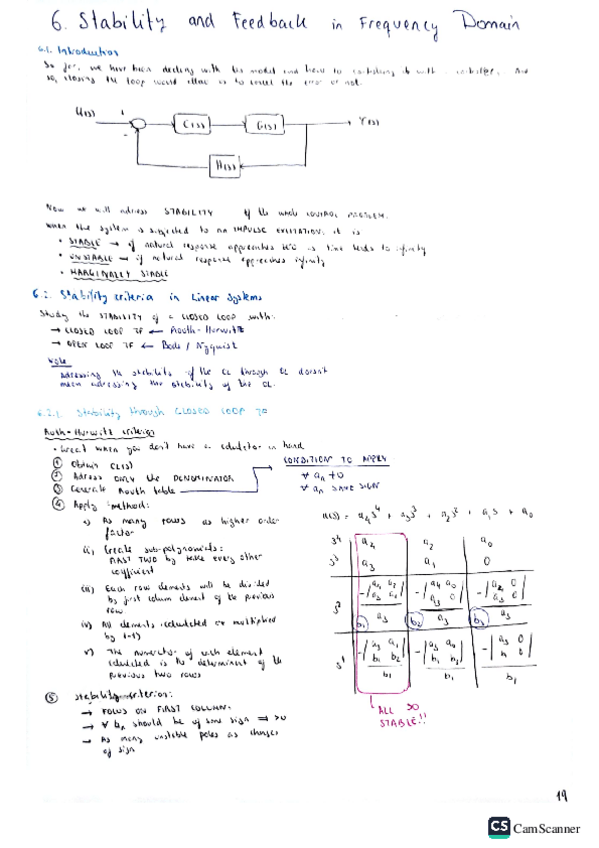 6. Stability and Feedback in Frequency Domain
6.1. Introduction
So far, we have been dealing with the model and how to
so, closing the loop would allow us to the error or not.
U(s)
+
-
C(s)
G(s)
Y(s)
H(s)
Now we will address STABILITY of the whole CONTROL PROBLEM.
When the system is subjected to an IMPULSE EXCITATION, it is
• STABLE → if natural response approaches as time tends to infinity
• UNSTABLE → if natural response approaches infinity
• MARGINALLY STABLE
6.2. Stability criteria in Linear Systems
Study the STABILITY of a CLOSED LOOP with:
→ CLOSED LOOP TF ← Routh-Hurwitz
→ OPEN LOOP TF ← Bode / Nyquist
Note
Adressing the stability of the CL through OL doesn't
mean adressing the stability of the OL.
6.2.1. Stability through CLOSED LOOP TF
Routh-Hurwitz criterion
• Great when you don't have a calculator in hand
① Obtain CL(s)
② Adress ONLY the DENOMINATOR
③ Generate Routh table
CONDITION TO APPLY
∀ an ≠ 0
∀ an SAME SIGN
④ Apply method:
i) As many rows as higher order
factor
ii) Create sub-polynomials:
FIRST TWO by take every other
coefficient
iii) Each row elements will be divided
by first column element of the previous
row
iv) All elements calculated are multiplied
by (-1)
v) The numerator of each element
calculated is the determinant of the
previous two rows
a(s) = a4s^4 + a3s^3 + a2s^2 + a1s + a0
s^4 a4 a2 a0
s^3 a3 a1 0
s^2 -|a4 a2| -|a4 a0| -|a4 0|
|a3 a1| |a3 0| |a3 0|
b1 a3 b2 a3 b3 a3
s^1 -|a3 a1| -|a3 a0| -|a3 0|
|b1 b2| |b1 b2|
b1 b1 b1
ALL >0
STABLE!!
⑤ Stability criterion:
→ FOCUS ON FIRST COLUMN:
→ ∀ bn should be of same sign ⇒ >0
→ As many unstable poles as changes
of sign
19
CS CamScanner